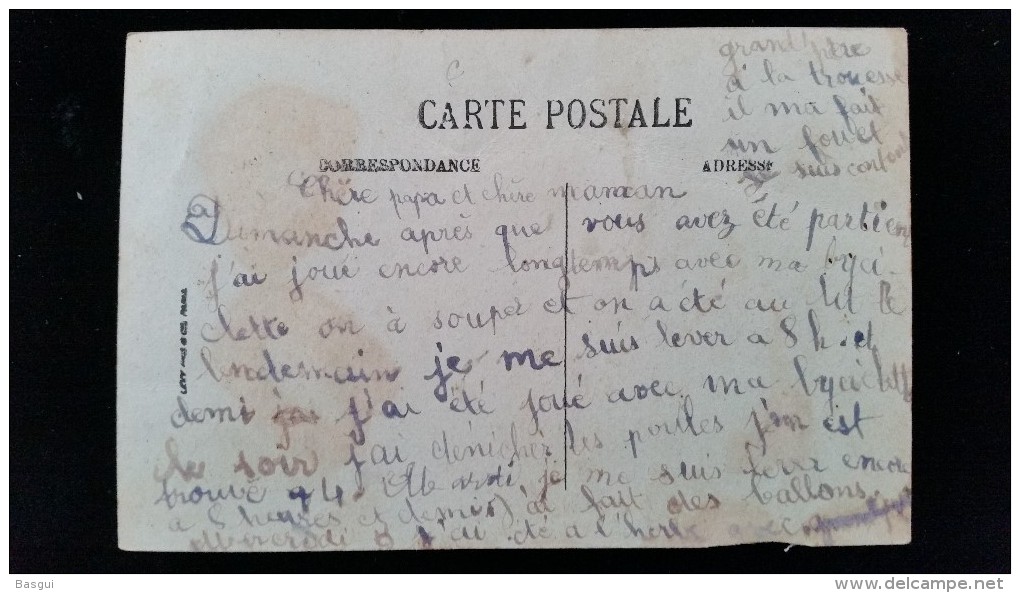 CARTE POSTALE
CORRESPONDANCE
ADRESSE
Chère papa et chère maman
Dimanche après que vous avez été partien
j'ai joué encore longtemps avec ma byci-
clette on à souper et on a été au lit le
lendemain je me suis lever a 8 h. et
demi j'ai été joué avec ma byciclett
le soir j'ai dénicher les poules j'en est
trouvé 14. Mardi je me suis lever encore
a 8 heures et demis j'ai fait des ballons
Mercredi j'ai été a l'herbe avec
grand père
à la trouesse
il ma fait
un fouet
je suis content
LEVY FILS & Cie, PARIS
Basgui
www.delcampe.net